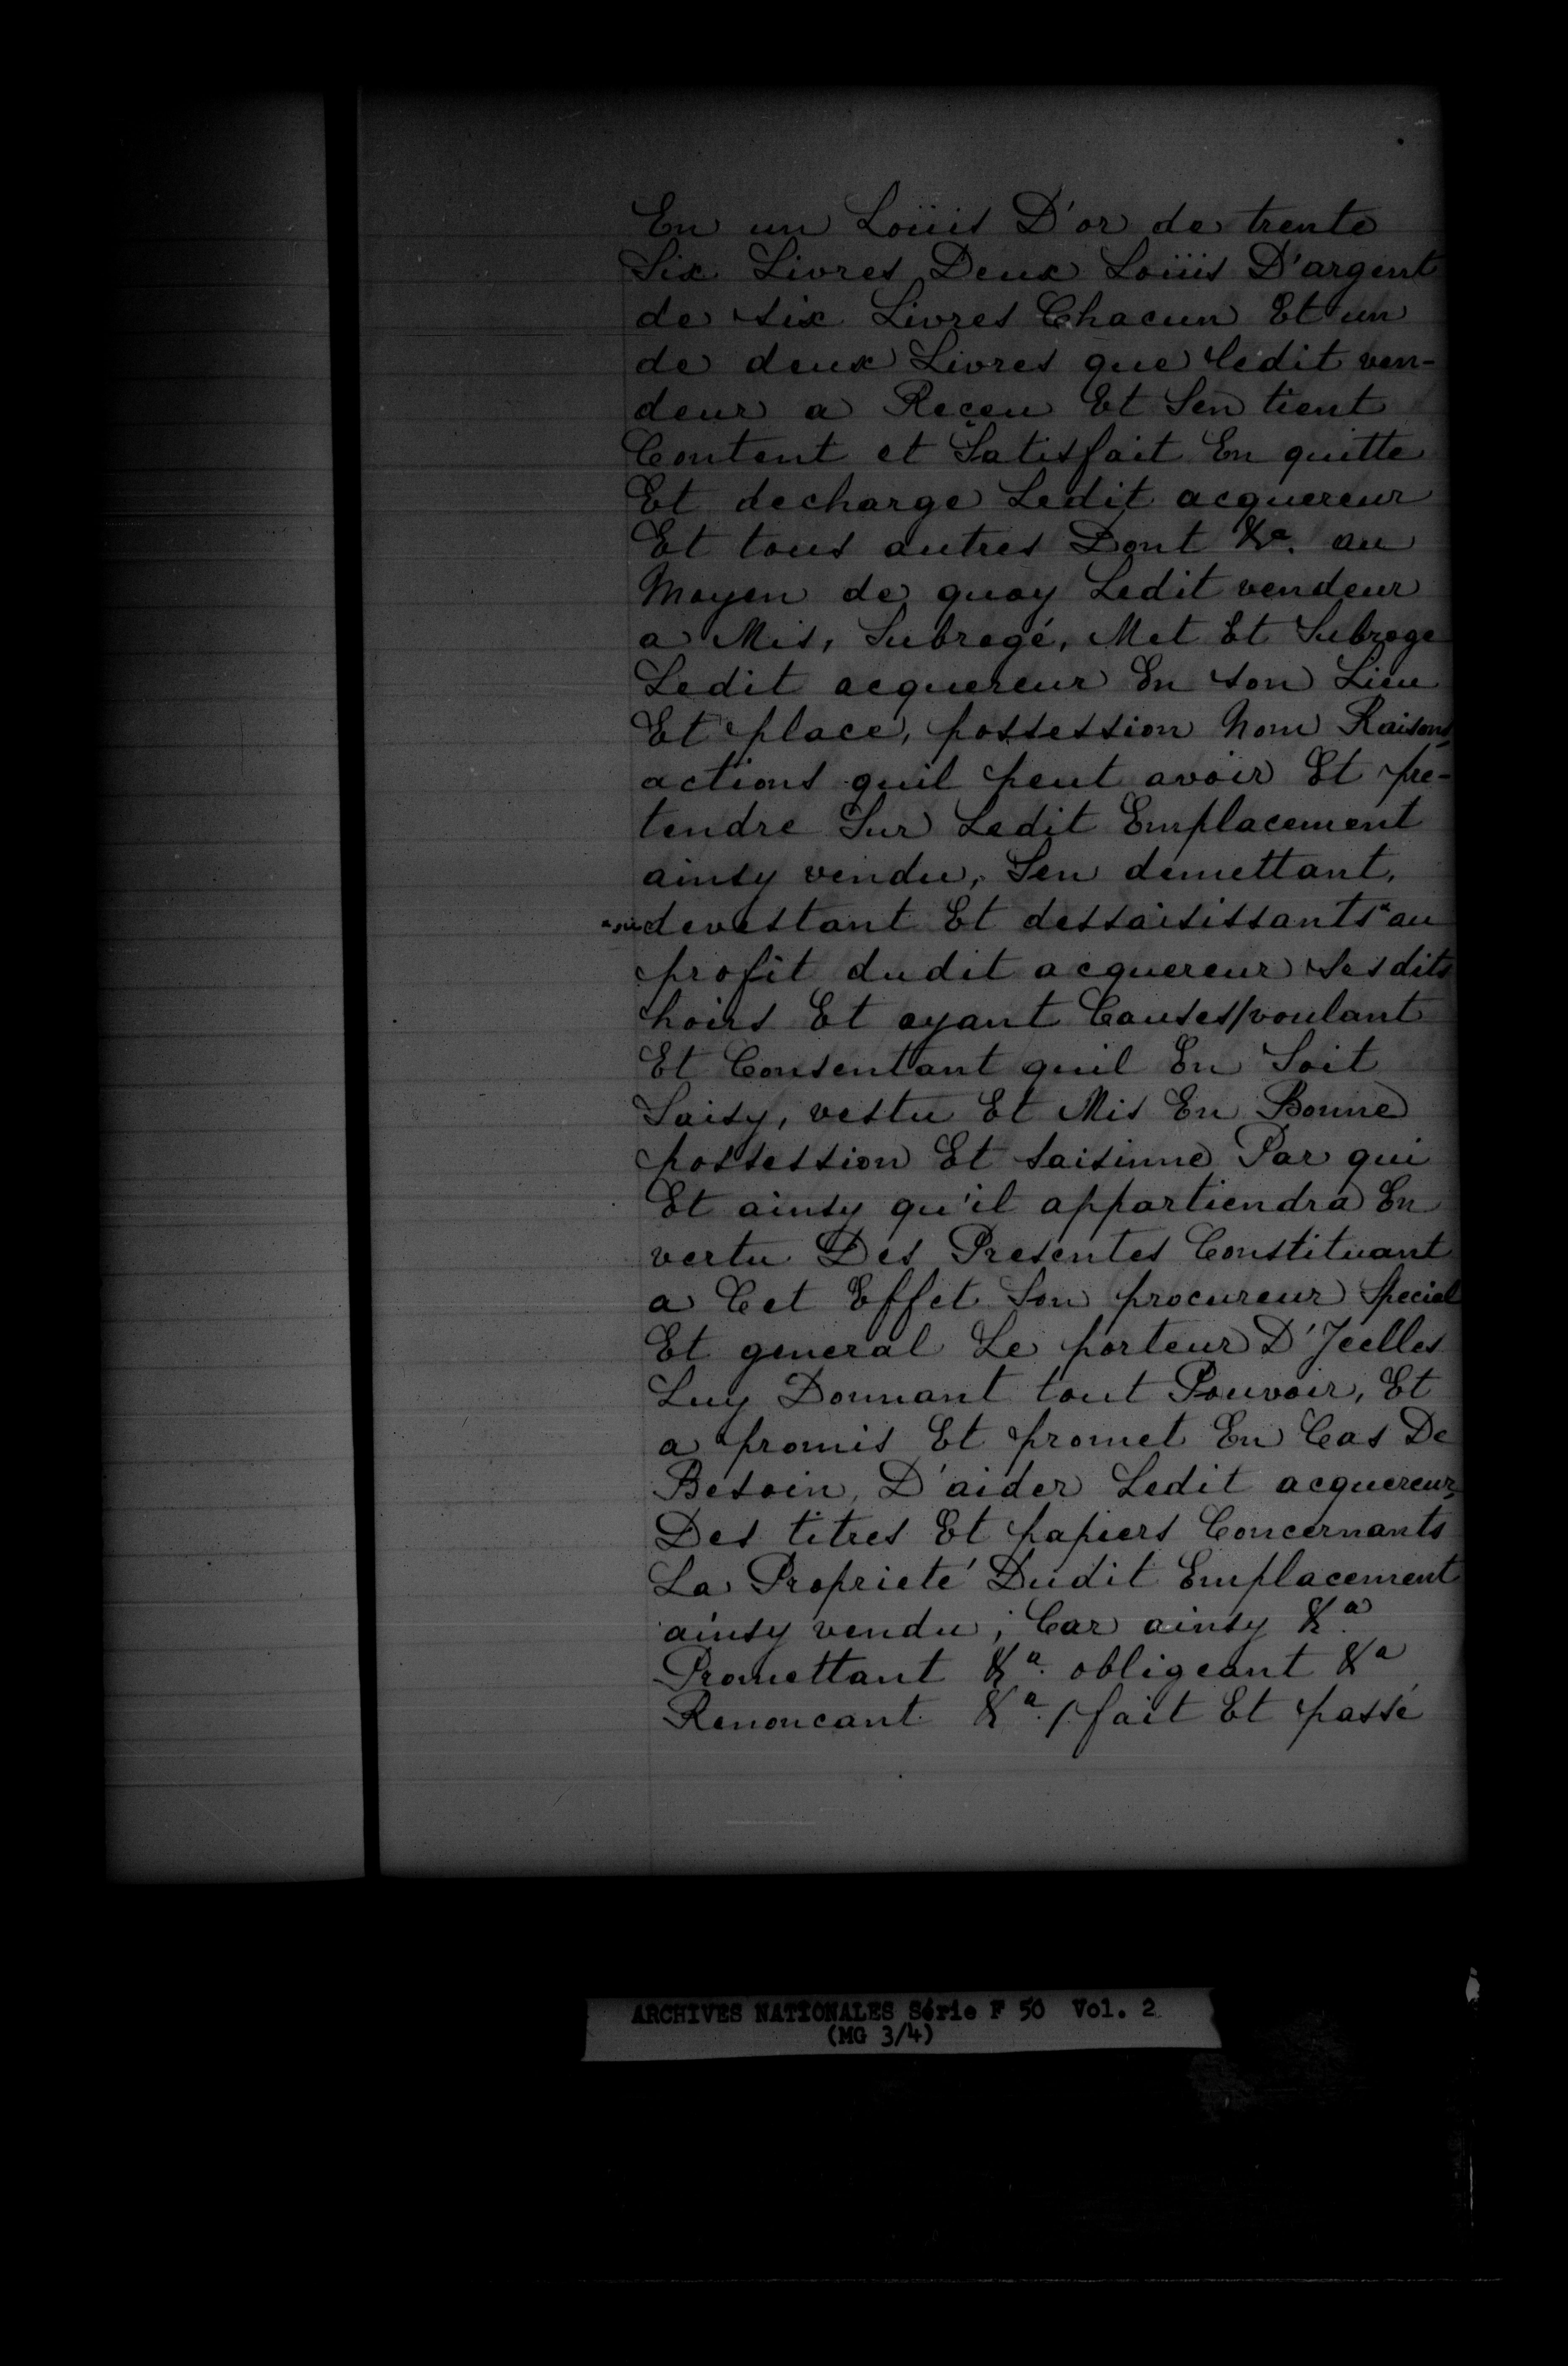 En un Loüis D'or de trente
Six Livres Deux Loüis D'argent
de six Livres Chacun Et un
de deux Livres que ledit ven-
deur a Reçeu Et Sen tient
Content et Satisfait En quitte
Et decharge Ledit acquereur
Et tous autres Dont &a. au
Moyen de quoy Ledit vendeur
a Mis, Subrogé, Met Et Subroge
Ledit acquereur En son Lieu
Et place, possession Nom Raisons,
actions quil peut avoir Et pre-
tendre Sur Ledit Emplacement
ainsy vendu, Sen demettant,
devestant Et dessaisissants* au
profit dudit acquereur Ses dits
hoirs Et ayant Causes/voulant
Et Consentant quil En Soit
Saisy, vestu Et Mis En Bonne
possession Et saisinne Par qui
Et ainsy qu'il appartiendra En
vertu Des Presentes Constituant
a Cet Effet Son procureur Special
Et general Le porteur D'Jcelles
Luy Donnant tout Pouvoir, Et
a promis Et promet En Cas De
Besoin, D'aider Ledit acquereur,
Des titres Et papiers Concernants
La Proprieté Dudit Emplacement
ainsy vendu; Car ainsy &a.
Promettant &a. obligeant &a
Renoncant &a./ fait Et passé
ARCHIVES NATIONALES Série F 50 Vol. 2
(MG 3/4)